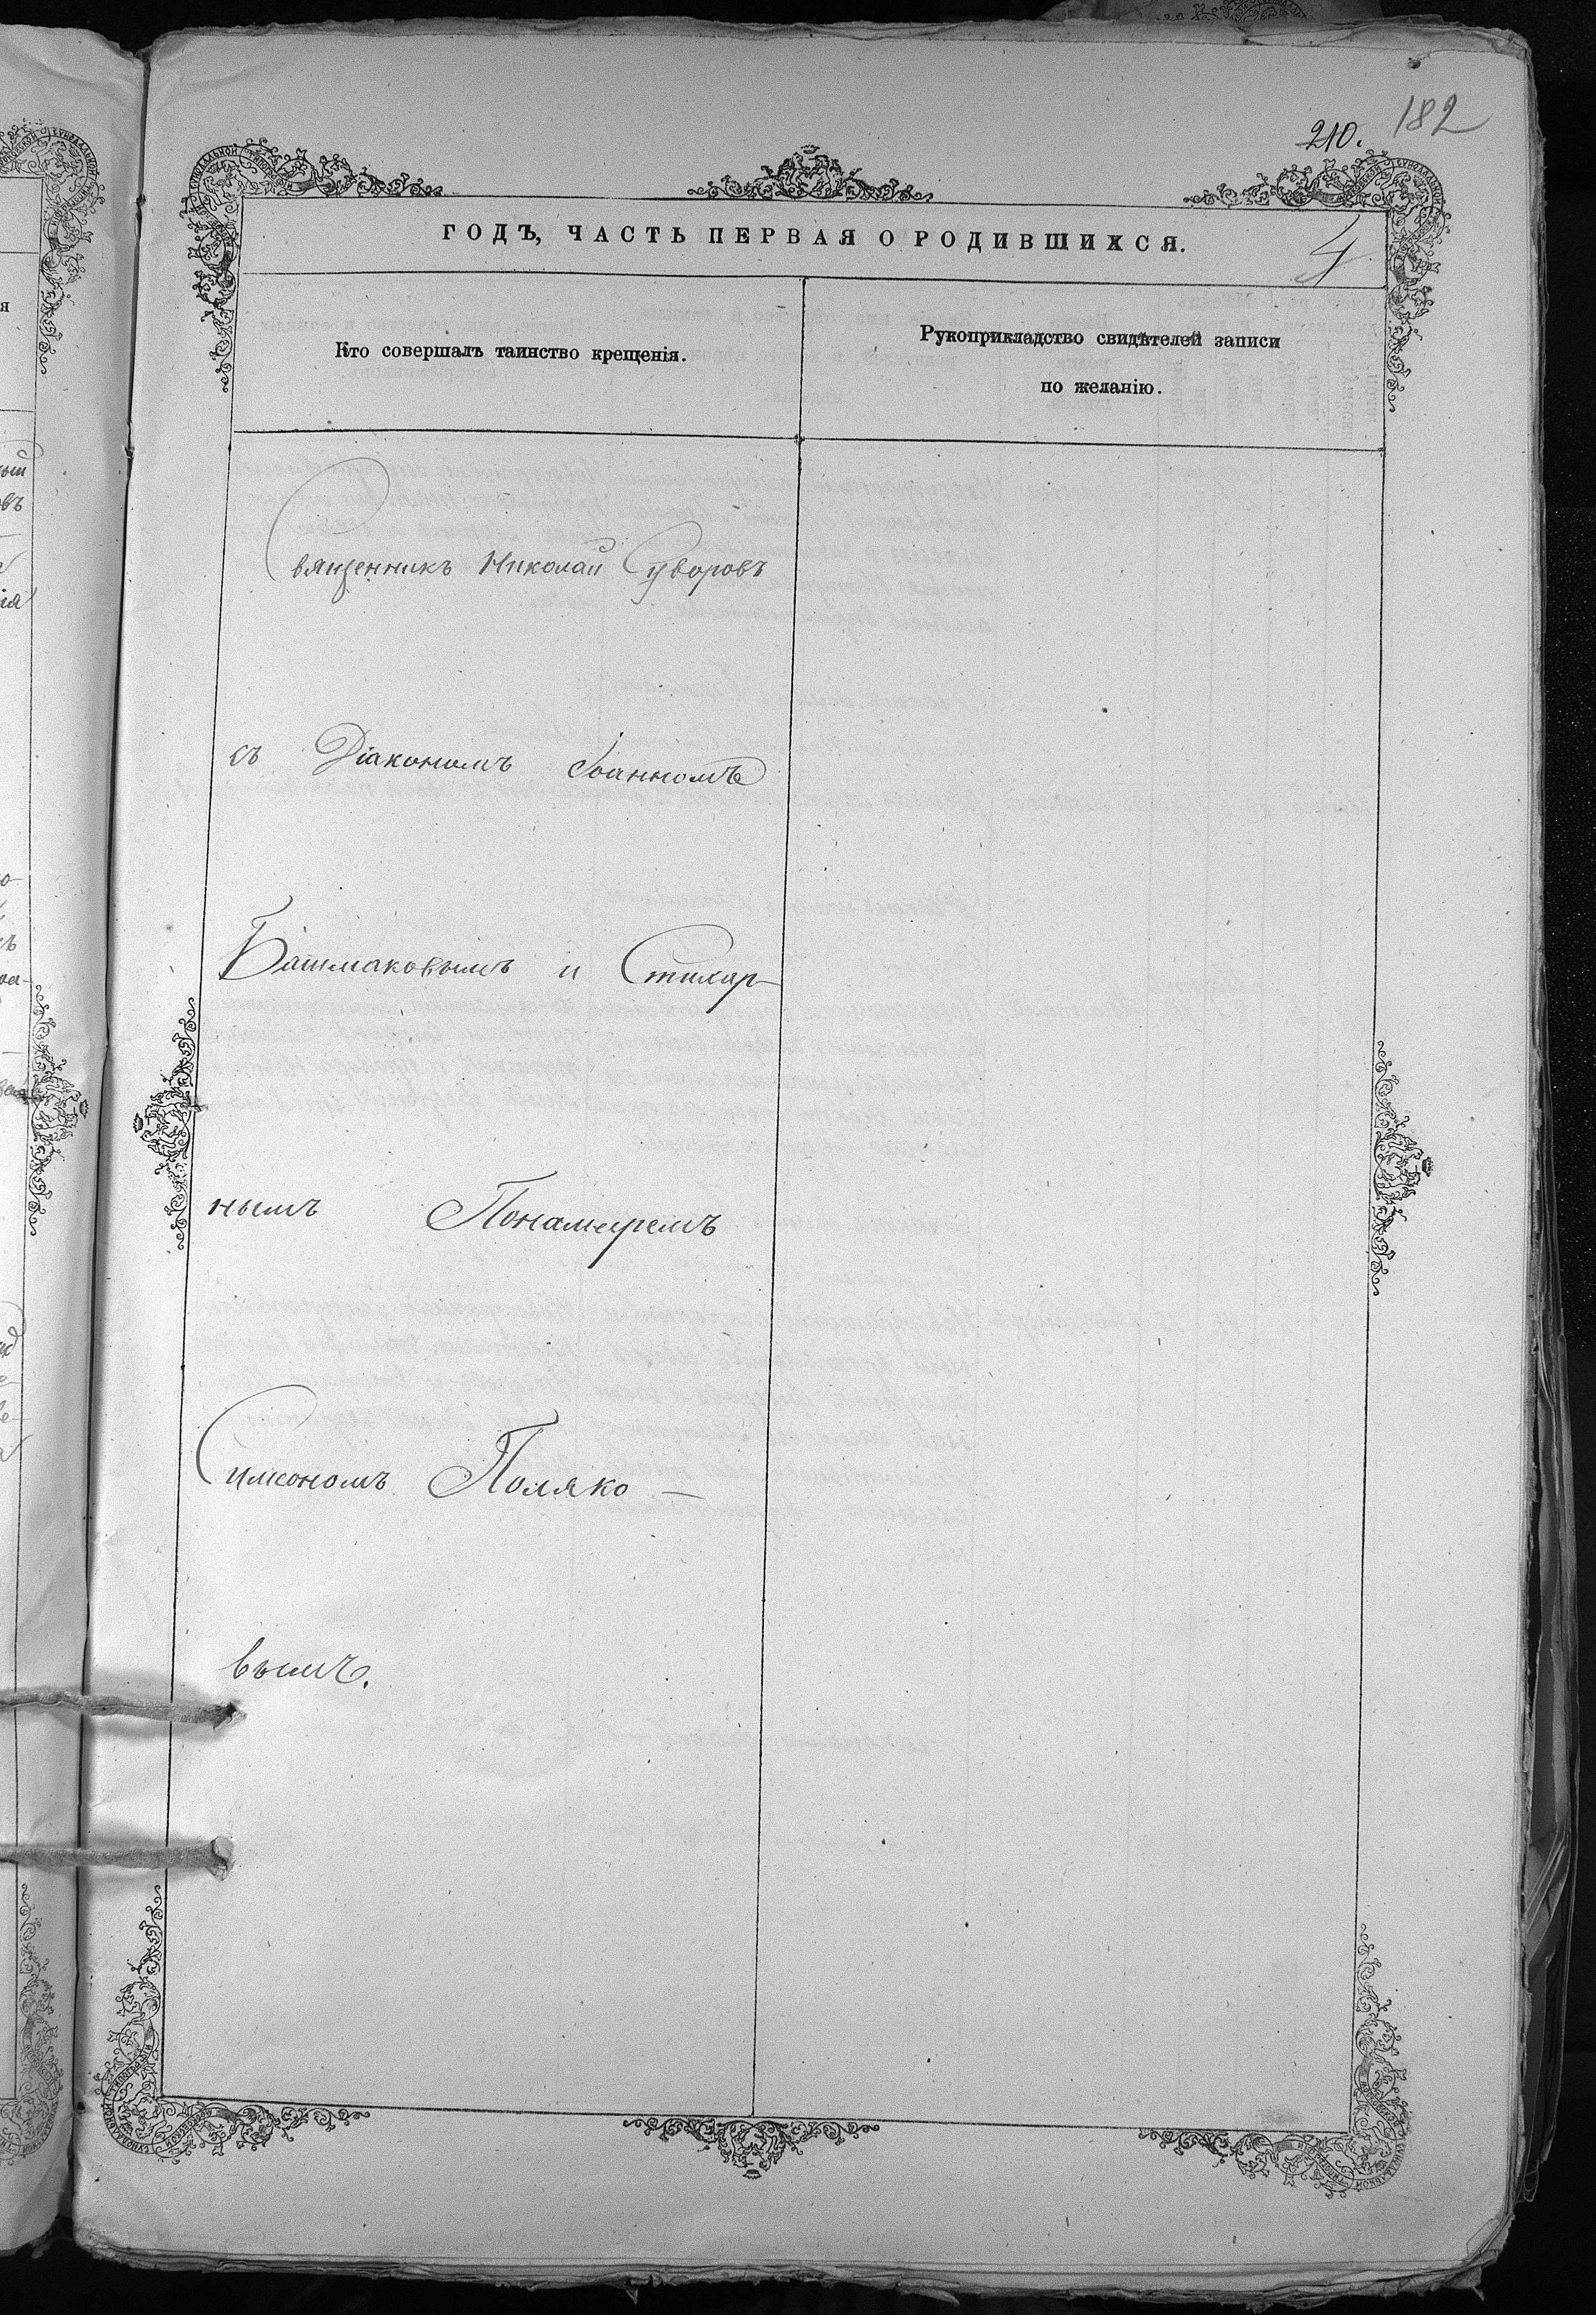 182
210.
ГОДЪ, ЧАСТЬ ПЕРВАЯ О РОДИВШИХСЯ.
4
Кто совершалъ таинство крещенія.
Рукоприкладство свидѣтелей записи
по желанію.
Священникъ Николай Суворовъ
съ Діакономъ Іоанномъ
Башмаковымъ и Стихар-
нымъ Понамаремъ
Симеономъ Поляко-
вымъ.